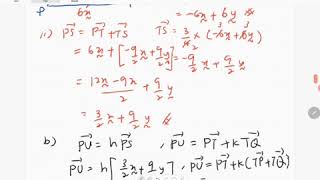 P 6x = -6x + 6y
(ii) PS = PT + TS TS = 3/4 x (-6x + 6y)
= 6x + [-9/2 x + 9/2 y] = -9/2 x + 9/2 y
= 12x - 9x / 2 + 9/2 y
= 3/2 x + 9/2 y
b) PU = hPS , PU = PT + kTQ
PU = h[3/2 x + 9/2 y] , PU = PT + k(TP + PQ)